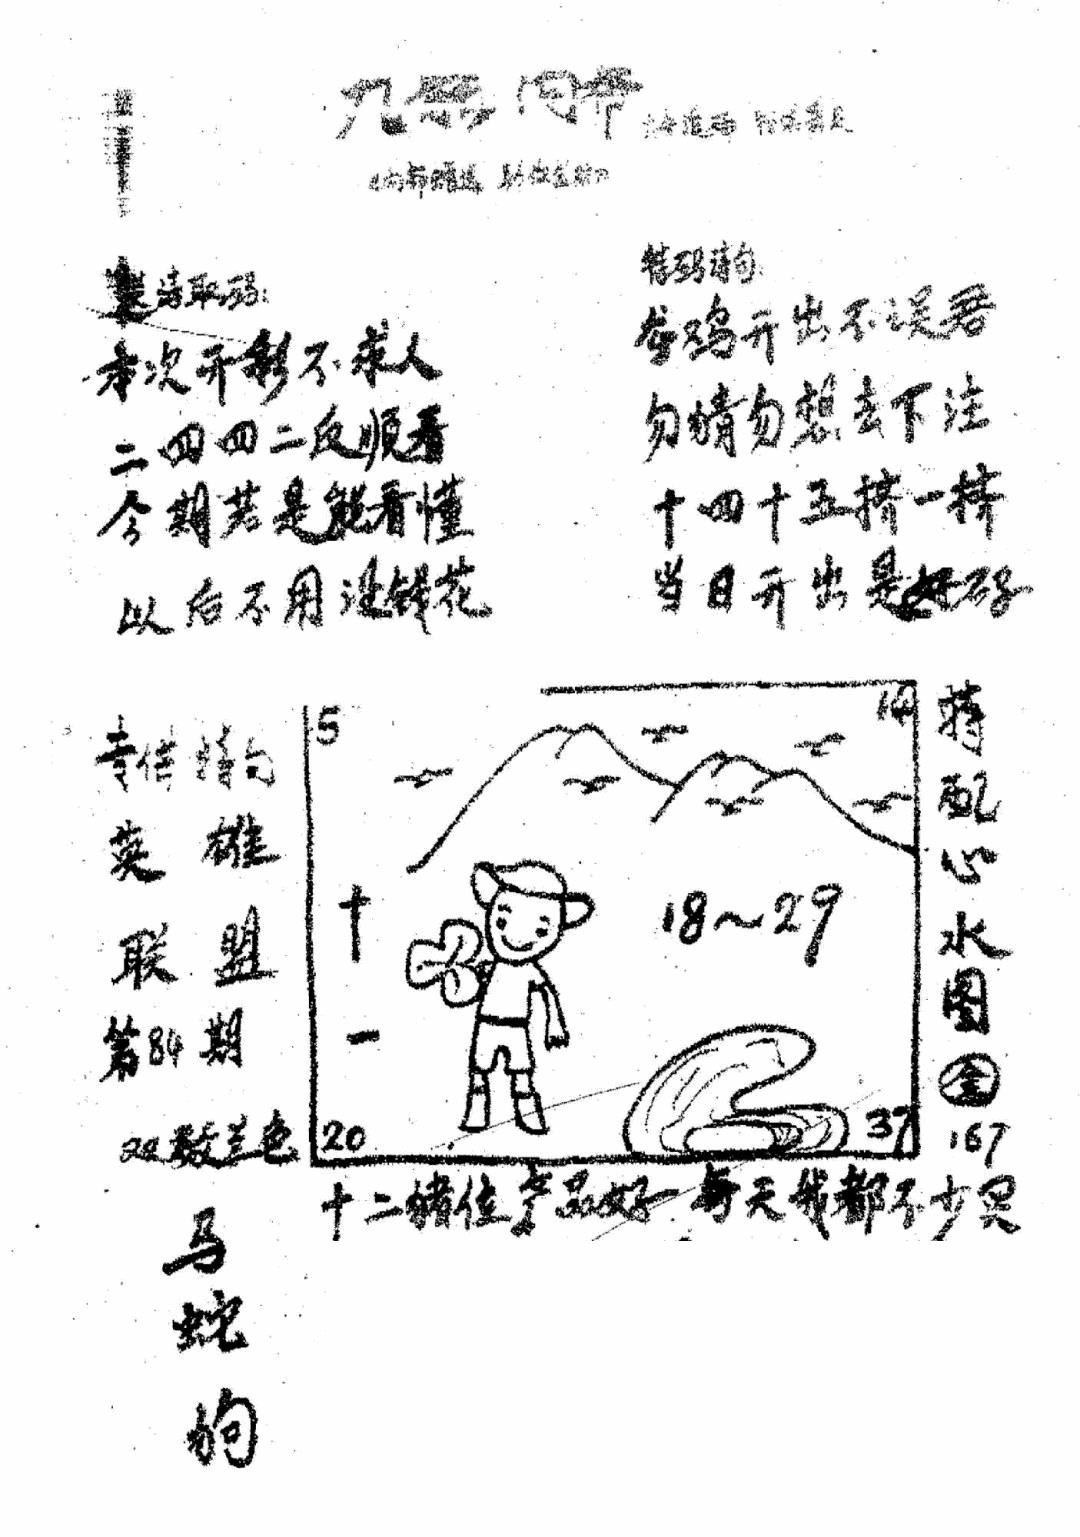 特码诗句:
本次开彩不求人
二四四二反顺看
今期若是能看懂
以后不用没钱花
龙鸡开出不误君
勿猜勿想去下注
十四十五挤一挤
当日开出是好码
英雄
联盟
第84期
双数兰色
马
蛇
狗
5
14
十
一
18～29
20
37
特配心水图
金
167
十二猪位产品好 每天我都不少买